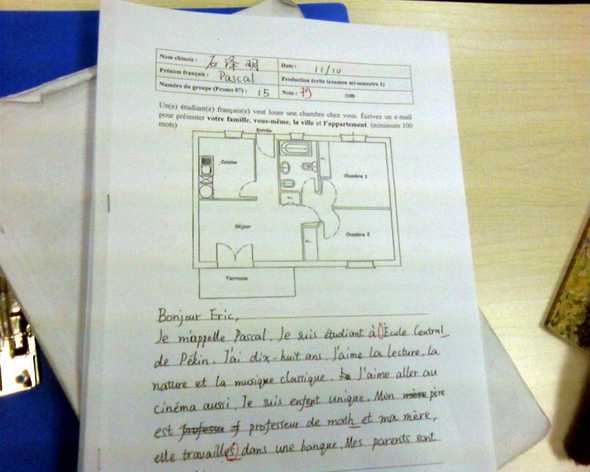 Nom chinois : 石泽明
Date : 11/10
Prénom français : Pascal
Production écrite (examen mi-semestre 1)
Numéro du groupe (Promo 07) : 15
Note : /100
Un(e) étudiant(e) français(e) veut louer une chambre chez vous. Écrivez un e-mail
pour présenter votre famille, vous-même, la ville et l'appartement. (minimum 100
mots)
Entrée
Cuisine
Chambre 1
Séjour
Chambre 2
Terrasse
Bonjour Eric,
Je m'appelle Pascal. Je suis étudiant à Ecole Central
de Pékin. J'ai dix-huit ans. J'aime la lecture, la
nature et la musique classique. J'aime aller au
cinéma aussi. Je suis enfant unique. Mon père
est professeur de math et ma mère,
elle travailles dans une banque. Mes parents sont